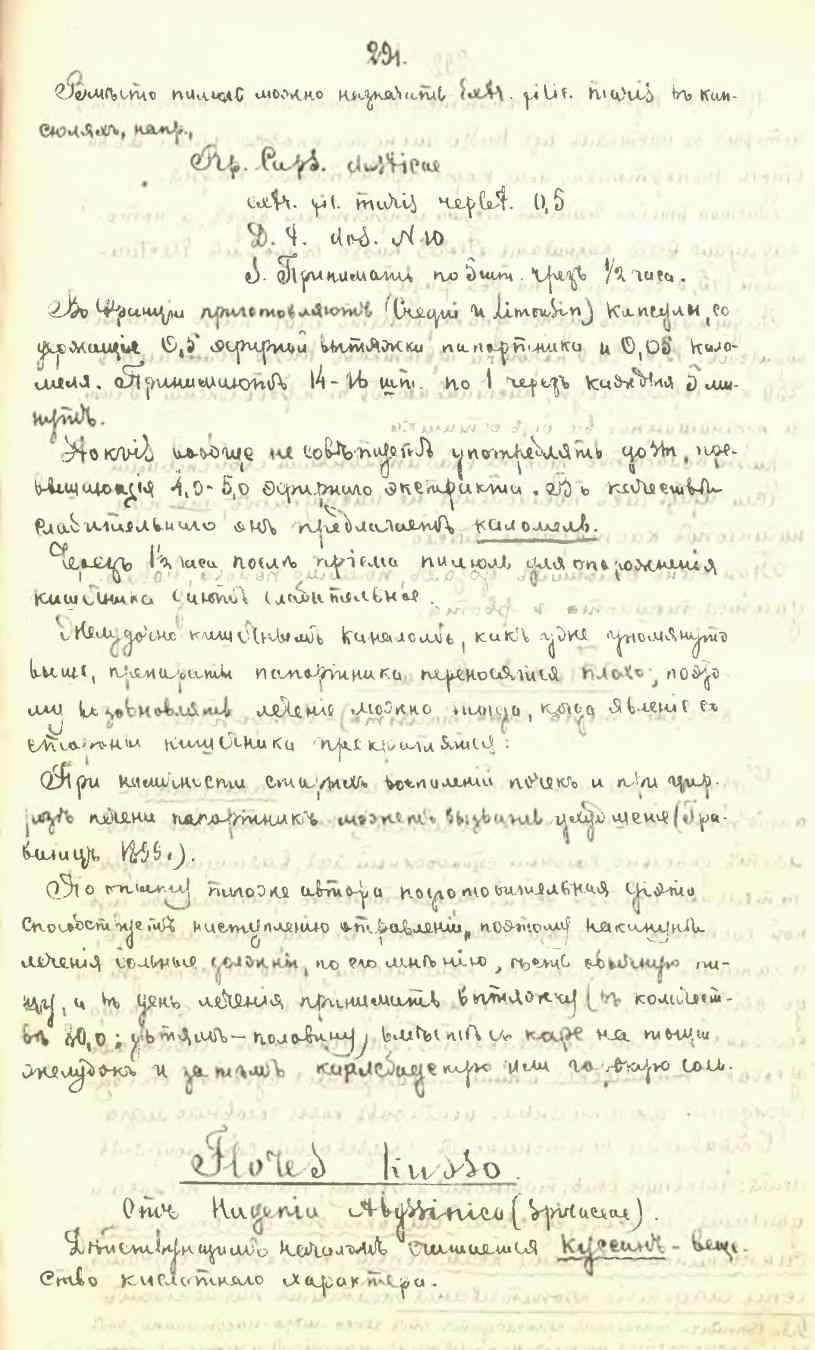 291.
Вмѣсто пилюль можно назначать Extr. filic. maris въ кап-
сюляхъ, напр.,
Rp. Caps. elasticae
extr. fil. maris replet. 0,5
D. t. dos. N 10
S. Принимать по 5 шт. чрезъ 1/2 часа.
Во Франціи приготовляютъ (Crequi и Limousin) капсулы, со
держащія 0,5 эфирной вытяжки папортника и 0,05 кало-
меля. Принимаютъ 14-16 шт. по 1 черезъ каждыя 5 ми-
нутъ.
вообще не совѣтуетъ употреблять дозы, пре-
вышающія 4,0-5,0 эфирнаго экстракта. Въ качествѣ
слабительнаго онъ предлагаетъ каломель.
Черезъ 1½ часа послѣ пріема пилюль для опорожненія
кишечника даютъ слабительное.
Желудочно кишечнымъ каналомъ, какъ уже упомянуто
выше, препараты папортника переносятся плохо, поэто
му возобновлять леченіе можно тогда, когда явленія со
стороны кишечника прекратятся.
При наличности старыхъ воспаленій почекъ и при цир-
розѣ печени папортникъ можетъ вызвать ухудшенія (Гра-
вицъ 1899.).
По опыту того же автора подготовительная діэта
способствуетъ наступленію отравленій, поэтому наканунѣ
леченія больные должны, по его мнѣнію, ѣсть обычную пи-
щу, а въ день леченія принимать вытяжку (въ количест-
вѣ 10,0; дѣтямъ - половину) вмѣстѣ съ кофе на тощій
желудокъ и затѣмъ карлсбадскую или горькую соль.
Flores kusso.
Отъ Hagenia Abyssinica (Spiraceae).
Дѣйствующимъ началомъ считается куссинъ - веще-
ство кислотнаго характера.